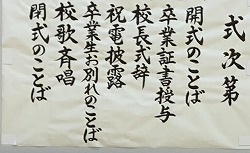 式次第
開式のことば
卒業証書授与
校長式辞
祝電披露
卒業生お別れのことば
校歌斉唱
閉式のことば